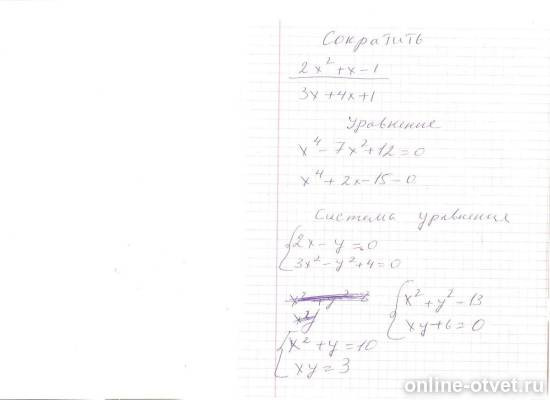 Сократить
2x² + x - 1
3x + 4x + 1
Уравнение
x⁴ - 7x² + 12 = 0
x⁴ + 2x - 15 - 0
Система уравнения
2x - y = 0
3x² - y² + 4 = 0
x² + y² - 13
xy + 6 = 0
x² + y = 10
xy = 3
online-otvet.ru